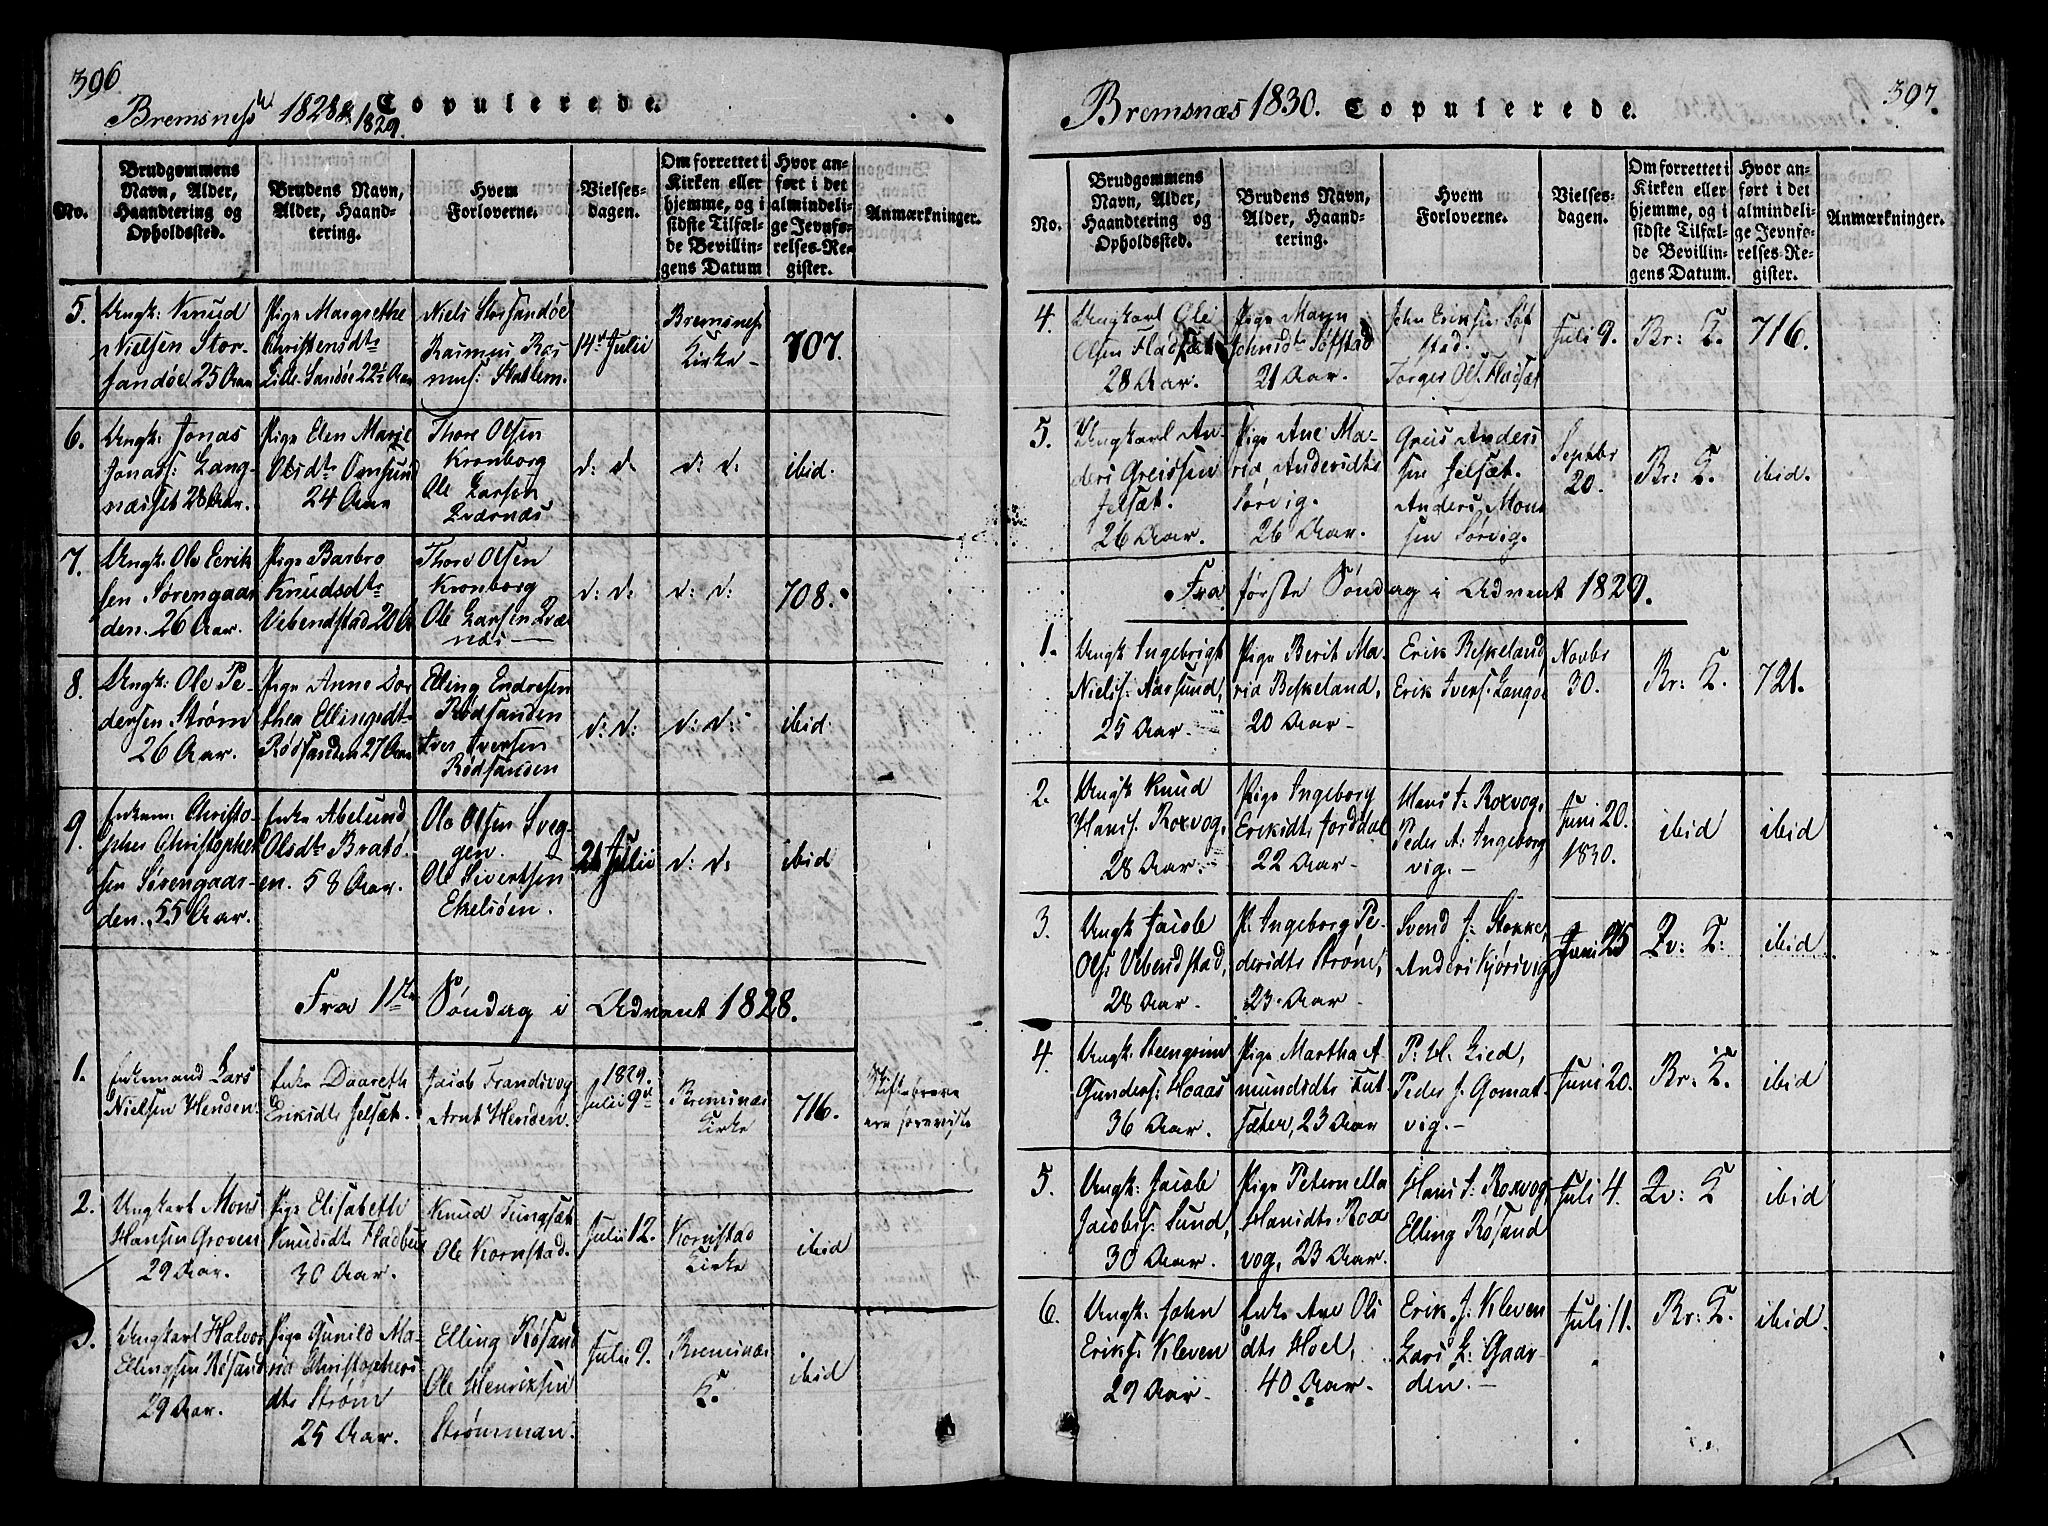 396
Bremsness 1828 & 1829. Copulerede.
No.
Brudgommens Navn, Alder, Haandtering og Opholdssted.
Brudens Navn, Alder, Haandtering.
Hvem Forloverne.
Vielsesdagen.
Om forrettet i Kirken eller hjemme, og i sidste Tilfælde Bevillingens Datum
Hvor anført i det almindelige Jevnførelses-Register.
Anmærkninger.
5.
Ungk: Knud
Nielsen Stor-
sandøe 25 Aar
Pige Margrethe
Christensdtr
Lille Sandøe 22½ Aar
Niels Storsandøe
Rasmus Ras
mus: Hatlem.
14de Julii
Bremsness
Kirke
707.
6.
Ungk: Jonas
Jonas: Lang-
næsset 28 Aar.
Pige Elen Marie
Olsdtr Omsund
24 Aar
Thore Olsen
Kronborg
Ole Larsen
Qværnæs
d: d:
d: d:
ibid.
7.
Ungk: Ole Erik
sen Sørengaar
den. 26 Aar.
Pige Barbro
Knudsdtr
Vebenstad 20 A
Thore Olsen
Kronborg
Ole Larsen Qvær
næs
d: d:
d: d:
708.
8.
Ungk: Ole Pe-
dersen Strøm
26 Aar.
Pige Anne Dor
thea Ellingsdt
Rødsanden 27 Aar
Elling Endresen
Rødsanden
Iver Iversen
Rødsanden
d: d:
d: d:
ibid
9.
Enkem: Christo-
pher Christopher
sen Sørengaar-
den. 55 Aar.
Enke Abelund
Olsdtr Bratø-
en. 58 Aar.
Ole Olsen Sveg-
gen.
Ole Sivertsen
Ekelsøen.
21 Julii
d: d:
ibid
Fra 1ste Søndag i Advent 1828.
1.
Enkemand Lars
Nielsen Hendsen
Enke Daareth
Eriksdtr Jelsæt.
Jacob Frandsvog
Arnt Hendsen.
1829.
Julii 9de
Bremsnæs
Kirke
716.
Skiftebreve
ere foreviste
2.
Ungkarl Mons
Hansen Groven
29 Aar.
Pige Elisabeth
Knudsdtr Fladsæt
30 Aar.
Knud Tungsæt
Ole Kornstad.
Julii 12.
Kornstad
Kirke
ibid
3.
Ungkarl Halvor
Ellingsen Røsand
29 Aar.
Pige Gunild Ma-
ria Christophers
dtr Strøm
25 Aar.
Elling Røsand
Ole Henriksen
Strømman.
Julii 9.
Bremsnæs
K.
ibid
Bremsnæs 1830. Copulerede.
397.
No.
Brudgommens Navn, Alder, Haandtering og Opholdssted.
Brudens Navn, Alder, Haandtering.
Hvem Forloverne.
Vielsesdagen.
Om forrettet i Kirken eller hjemme, og i sidste Tilfælde Bevillingens Datum.
Hvor anført i det almindelige Jevnførelses-Register.
Anmærkninger.
4.
Ungkarl Ole
Olsen Fladsæt
28 Aar.
Pige Maren
Johnsdtr Søfstad
21 Aar.
John Eriksen Søf
stad.
Torger Ols. Fladsæt
Juli 9.
Br: K.
716.
5.
Ungkarl An-
ders Greidsen
Jelsæt.
26 Aar.
Pige Ane Ma-
ria Andersdtr
Sørvig.
26 Aar.
Greis Anders
sen Jelsæt.
Anders Mons
sen Sørvig.
Septbr
20.
Br: K.
ibid.
Fra første Søndag i Advent 1829.
1.
Ungk Ingebrigt
Niels: Aarsund,
25 Aar
Pige Berit Ma-
ria Beskeland,
20 Aar
Erik Beskeland
Erik Ivers. Langøe
Novbr
30.
Br: K.
721.
2.
Ungk Knud
Hans. Roxvog,
28 Aar.
Pige Ingeborg
Eriksdtr Jorddal
22 Aar
Hans J: Roxvog,
Peder A: Ingeborg
vig.
Juni 20.
1830.
ibid
ibid
3.
Ungk Jacob
Ols: Vebenstad,
28 Aar
P. Ingeborg Pe-
dersdtr Strøm,
23 Aar
Svend J: Stokke,
Anders Kjørsvig
Juni 25
Kv: K:
ibid
4.
Ungk: Steengrim
Gunders: Hoaas
36 Aar.
Pige Martha A-
mundsdtr Fut
sæter, 23 Aar
P: H. Lied,
Peder J. Gomat-
vig.
Juni 20.
Br: K.
ibid
5.
Ungk: Jacob
Jacobs: Sund,
30 Aar.
Pige Peternella
Hansdtr Rox
vog, 23 Aar.
Hans J: Roxvog,
Elling Røsand
Juli 4.
Kv: K
ibid
6.
Ungk: John
Eriks. Kleven
29 Aar
Enke Ane Ols
dtr Hoel,
40 Aar.
Erik J. Kleven
Lars L: Gaar-
den.
Juli 11.
Br: K.
ibid.